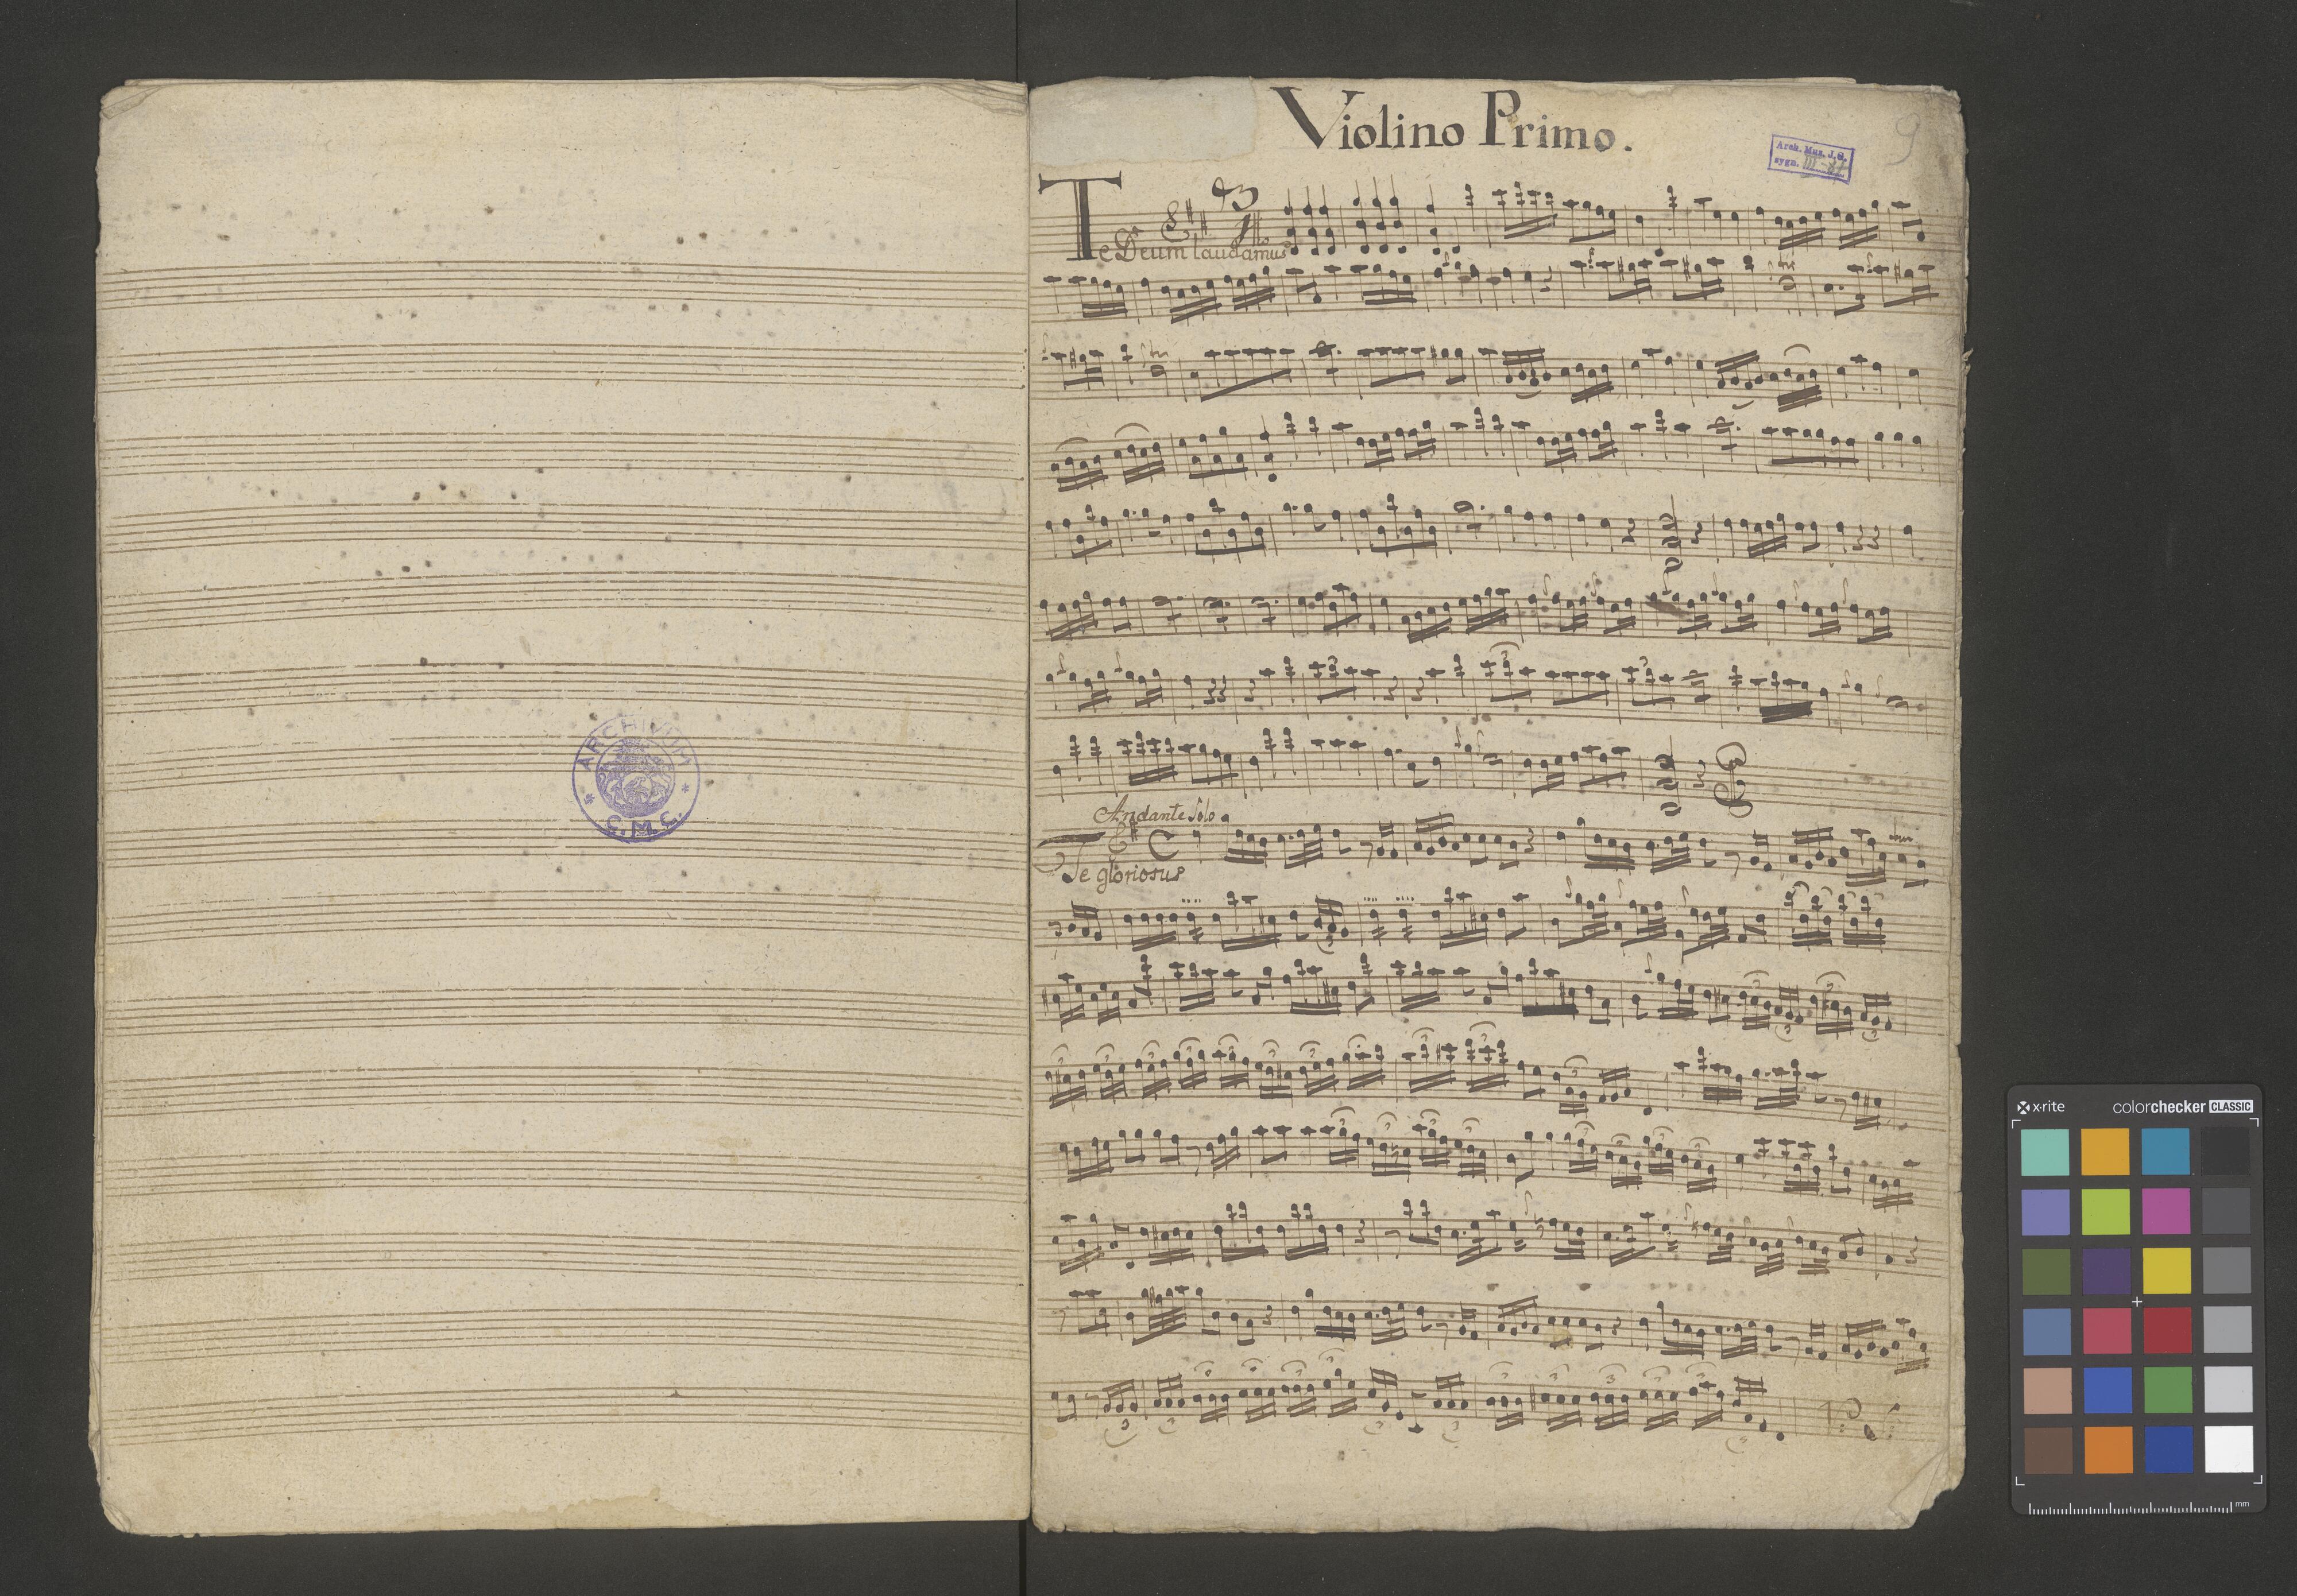 Violino Primo.
9
Arch. Muz. J. G.
sygn. III-37
Te Deum laudamus
Andante Solo
Te gloriosus
ARCHIVUM
C. M. C.
x-rite
colorchecker CLASSIC
mm